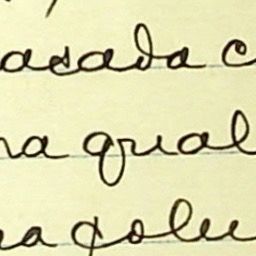 acada c
na qual
na solu